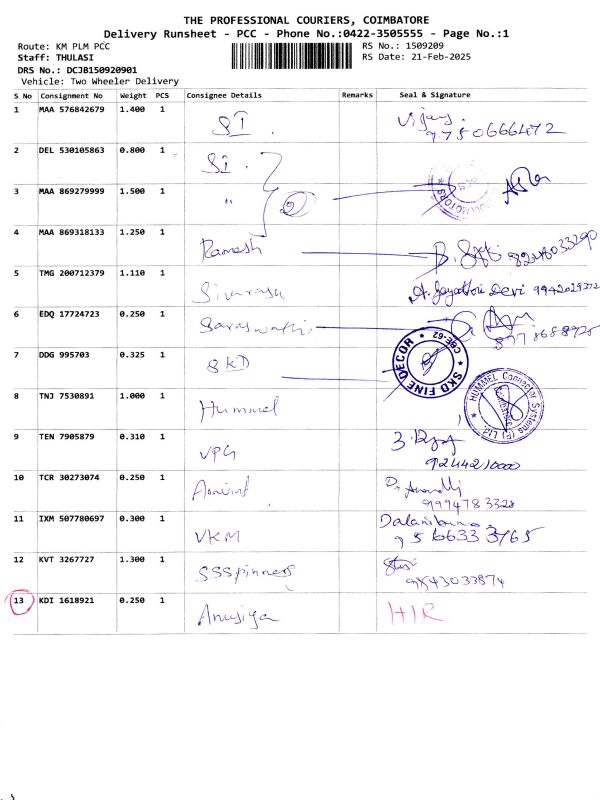 THE PROFESSIONAL COURIERS, COIMBATORE
Delivery Runsheet - PCC - Phone No.:0422-3505555 - Page No.:1
Route: KM PLM PCC RS No.: 1509209
Staff: THULASI RS Date: 21-Feb-2025
DRS No.: DCJB150920901
Vehicle: Two Wheeler Delivery
S No Consignment No Weight PCS Consignee Details Remarks Seal & Signature
1 MAA 576842679 1.400 1 SI. Vijay.
9750666472
2 DEL 530105863 0.800 1 SI.
3 MAA 869279999 1.500 1 " 2
4 MAA 869318133 1.250 1 Ramesh
5 TMG 200712379 1.110 1 Sivarasu Devi 9942029372
6 EDQ 17724723 0.250 1 Saraswathi
7 DDG 995703 0.325 1 SKD SKD FINE DECOR * CBE-62 *
8 TNJ 7530891 1.000 1 Hummel HUMMEL Connector Systems (P) Ltd.
9 TEN 7905879 0.310 1 VPG
924421000
10 TCR 30273074 0.250 1
9994783328
11 IXM 507780697 0.300 1 VKM
9566333765
12 KVT 3267727 1.300 1 SSSpinners
9843033874
13 KDI 1618921 0.250 1 Anusiya HIR